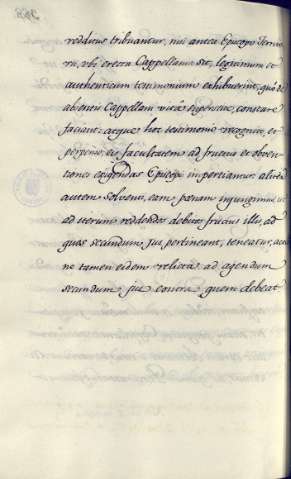 redditus tribuantur, nisi antea Episcopo Territo
rii, vbi erecta Cappellania sit, legitimum et
authenticum testimonium exhibuerint, quó de
absentis Cappellani vitâ superstite, constare
faciant: atque hoc testimonio recognito, et
perpenso, eis facultatem ad fructus et obven
tiones exigendas Episcopi impertiantur aliter
autem solventi, eam poenam injungimus ut
ad iterum reddendos debitos fructus illis, ad
quos secundum jus pertineant, teneatur, actio
ne tamen eidem relictâ ad agendum
secundum jus contra quem debeat